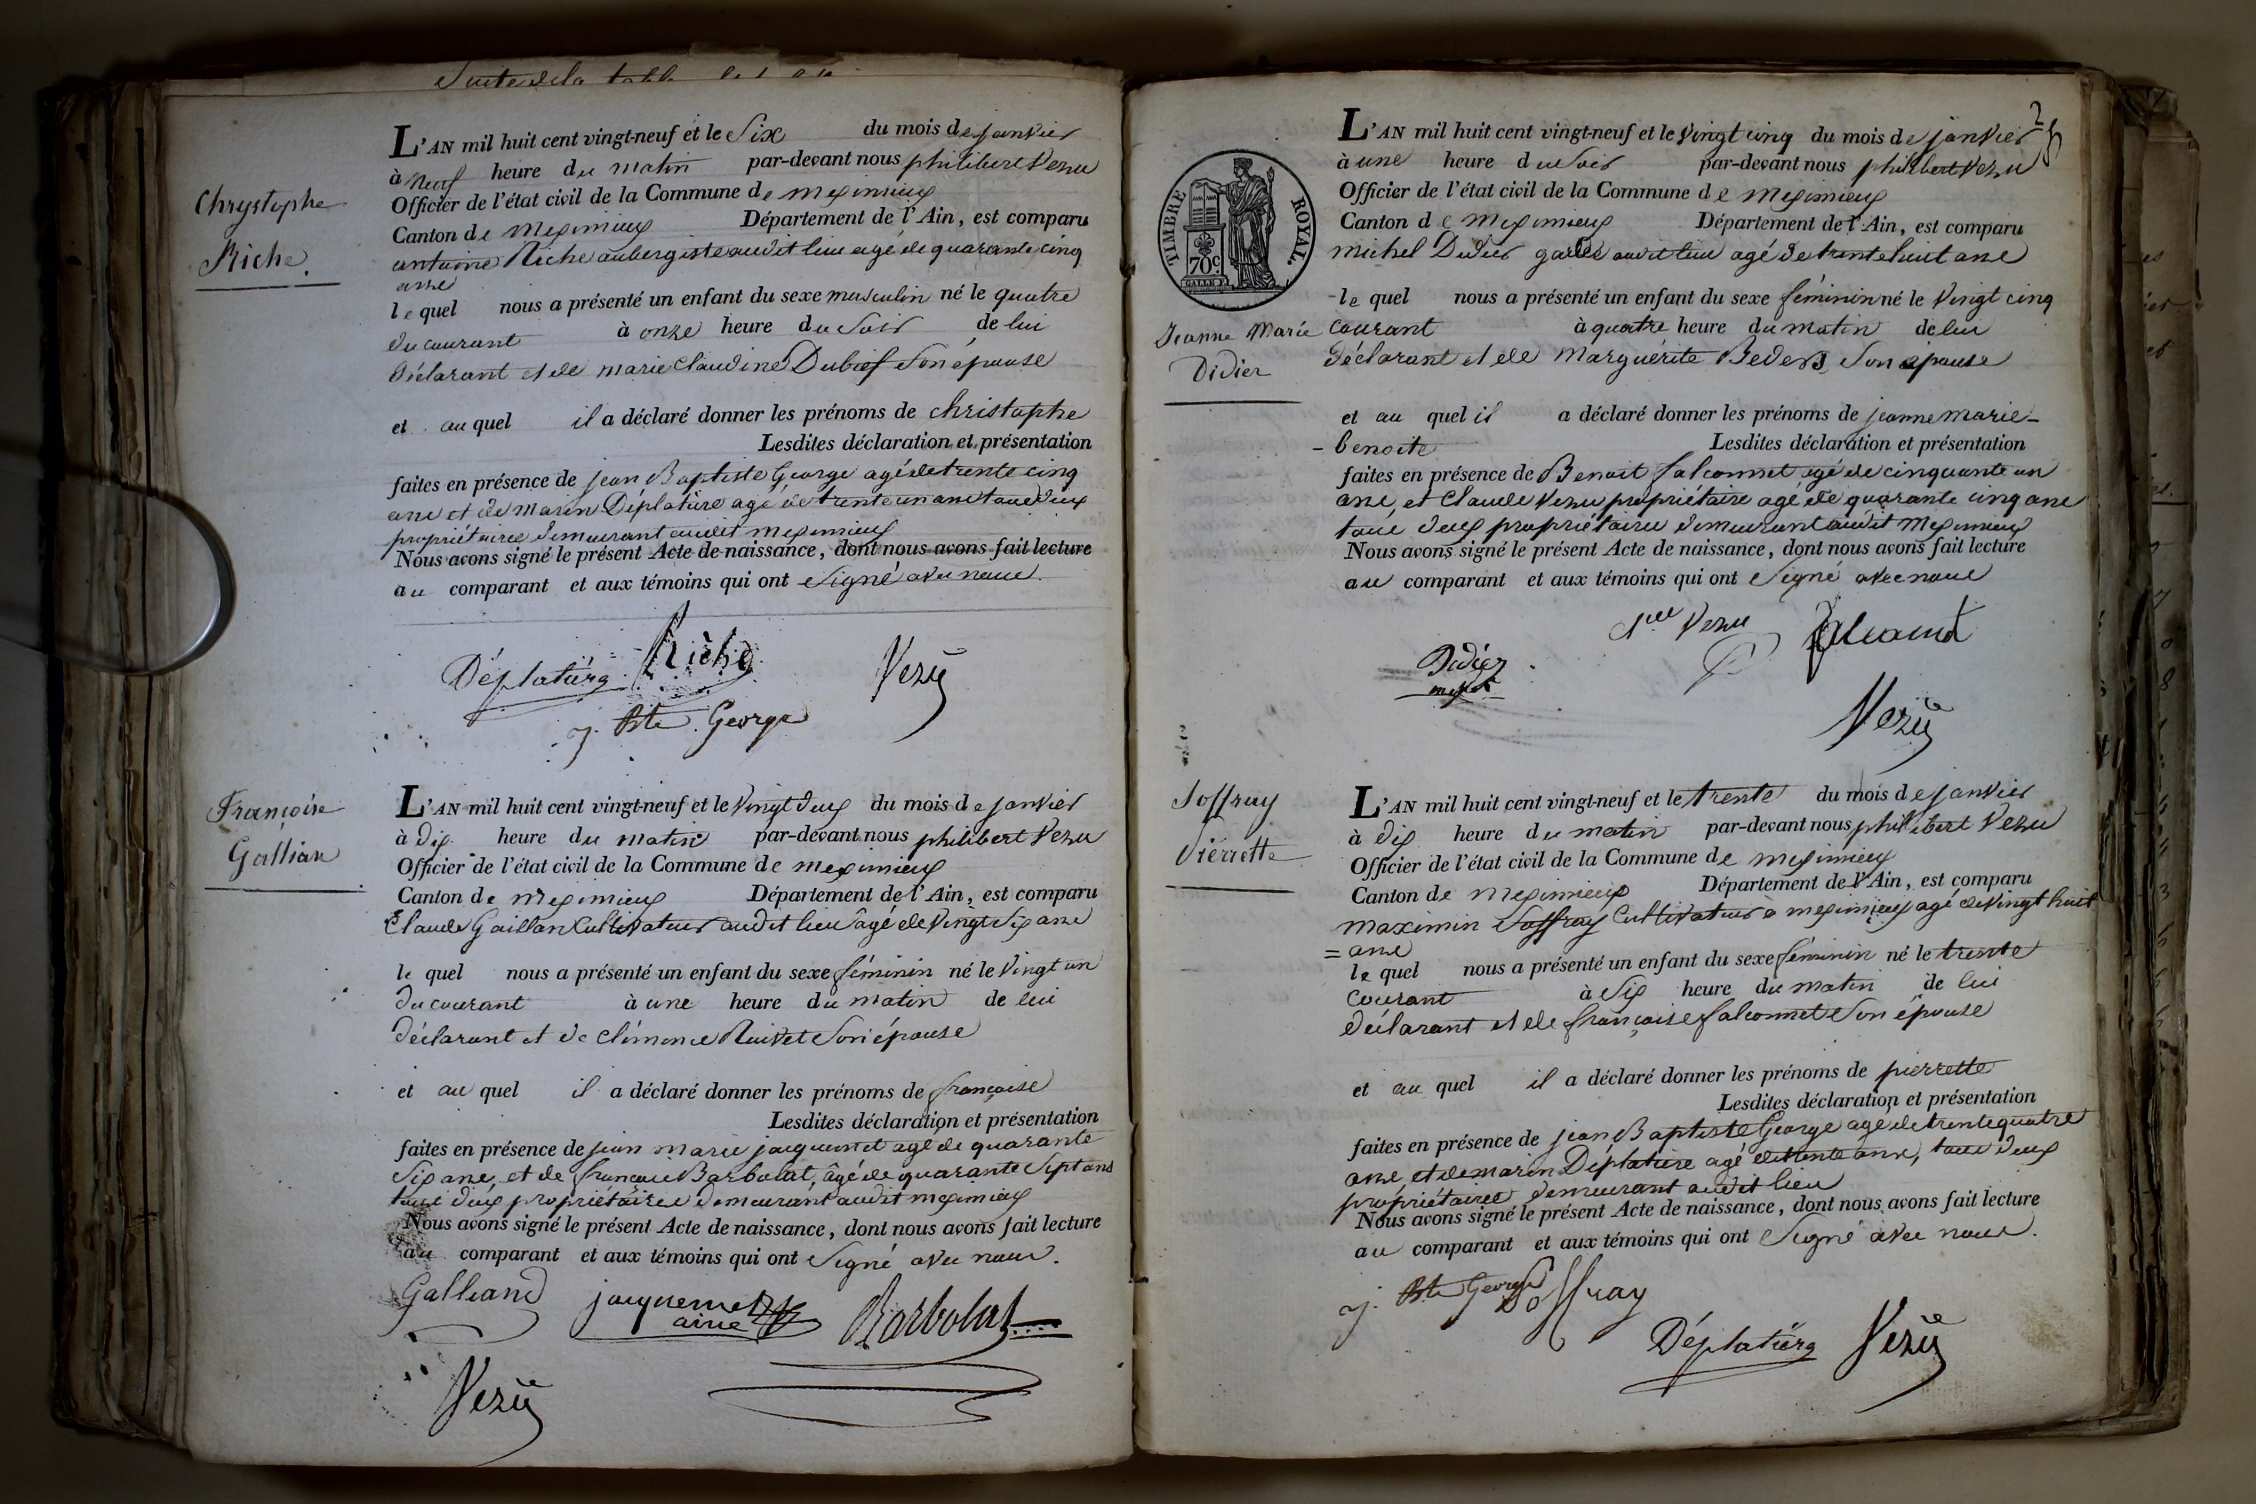 Suite de la table
Chrystophe
Riche.
L'AN mil huit cent vingt-neuf et le Six du mois de janvier
à Neuf heure du matin par-devant nous philibert Vezu
Officier de l'état civil de la Commune de meximieux
Canton de meximieux Département de l'Ain, est comparu
antoine Riche aubergiste audit lieu agé de quarante cinq
ans
le quel nous a présenté un enfant du sexe masculin né le quatre
du courant à onze heure du Soir de lui
déclarant et de marie Claudine Dubief Son épouse
et au quel il a déclaré donner les prénoms de christophe
Lesdites déclaration et présentation
faites en présence de jean Baptiste George agé de trente cinq
ans et de marin Déplature agé de trente un ans tous deux
propriétaires demeurant audit meximieux
Nous avons signé le présent Acte de naissance, dont nous avons fait lecture
au comparant et aux témoins qui ont Signé avec nous.
Déplature Riche Vezu
j. Bte George
Françoise
Gallian
L'AN mil huit cent vingt-neuf et le Vingt deux du mois de janvier
à dix heure du matin par-devant nous philibert Vezu
Officier de l'état civil de la Commune de meximieux
Canton de meximieux Département de l'Ain, est comparu
Claude Gaillan Cultivateur audit lieu âgé de Vingt Six ans
le quel nous a présenté un enfant du sexe féminin né le Vingt un
du courant à une heure du matin de lui
déclarant et de clémence Ruivet Son épouse
et au quel il a déclaré donner les prénoms de françoise
Lesdites déclaration et présentation
faites en présence de jean marie jacquemet agé de quarante
Six ans, et de françois Barbolat, âgé de quarante Sept ans
tous deux propriétaires demeurant audit meximieux
Nous avons signé le présent Acte de naissance, dont nous avons fait lecture
au comparant et aux témoins qui ont Signé avec nous.
Galliand jacquemet Barbolat
ainé
Vezu
2
TIMBRE ROYAL.
70c.
Jeanne Marie
Didier
L'AN mil huit cent vingt-neuf et le Vingt cinq du mois de janvier
à une heure du Soir par-devant nous philibert Vezu
Officier de l'état civil de la Commune de meximieux
Canton de meximieux Département de l'Ain, est comparu
michel Didier garde audit lieu agé de trente huit ans
le quel nous a présenté un enfant du sexe féminin né le Vingt cinq
courant à quatre heure du matin de lui
déclarant et de marguérite Son épouse
et au quel il a déclaré donner les prénoms de jeanne marie-
-benoite Lesdites déclaration et présentation
faites en présence de Benoit falconnet agé de cinquante un
ans, et Claude Vezu propriétaire agé de quarante cinq ans
tous deux propriétaires demeurant audit meximieux
Nous avons signé le présent Acte de naissance, dont nous avons fait lecture
au comparant et aux témoins qui ont Signé avec nous
Vezu
Didier
Vezu
Soffray
Pierrette
L'AN mil huit cent vingt-neuf et le trente du mois de janvier
à dix heure du matin par-devant nous philibert Vezu
Officier de l'état civil de la Commune de meximieux
Canton de meximieux Département de l'Ain, est comparu
maximin Soffray Cultivateur à meximieux agé de Vingt huit
= ans
le quel nous a présenté un enfant du sexe féminin né le trente
courant à Six heure du matin de lui
déclarant et de françoise falconnet Son épouse
et au quel il a déclaré donner les prénoms de pierrette
Lesdites déclaration et présentation
faites en présence de jean Baptiste George agé de trente quatre
ans, et de marin Déplature agé de trente ans, tous deux
propriétaires demeurant audit lieu
Nous avons signé le présent Acte de naissance, dont nous avons fait lecture
au comparant et aux témoins qui ont Signé avec nous.
j. Bte George Soffray
Déplature Vezu